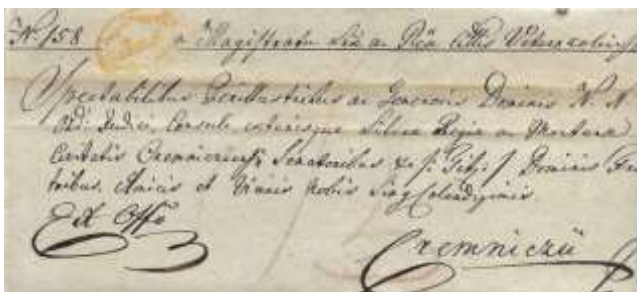 N: 158 a Magistratu Lib ac Rćae Cittis Veterozolien
Spectabilibus Perillustribus ac Generosis Dominis N. N.
Judici, Consuli caeterisque Liberae Regiae ac Montanae
Civitatis Cremnicziensis Senatoribus &c. Dominis Fra
tribus, Amicis et Vicinis Nobis Sing Colendissimis.
Ex Offo
Cremniczii